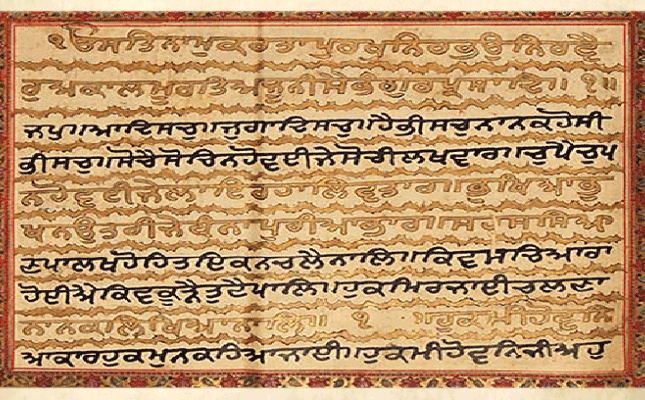 ੴਸਤਿਨਾਮੁਕਰਤਾਪੁਰਖੁਨਿਰਭਉਨਿਰਵੈ
ਰੁਅਕਾਲਮੂਰਤਿਅਜੂਨੀਸੈਭੰਗੁਰਪ੍ਰਸਾਦਿ॥੧॥
ਜਪੁ॥ਆਦਿਸਚੁ॥ਜੁਗਾਦਿਸਚੁ॥ਹੈਭੀਸਚੁਨਾਨਕਹੋਸੀ
ਭੀਸਚੁ॥ਸੋਚੈਸੋਚਿਨਹੋਵਈਜੇਸੋਚੀਲਖਵਾਰ॥ਚੁਪੈਚੁਪ
ਨਹੋਵਈਜੇਲਾਇਰਹਾਲਿਵਤਾਰ॥ਭੁਖਿਆਭੁ
ਖਨਉਤਰੀਜੇਬੰਨਾਪੁਰੀਆਭਾਰ॥ਸਹਸਸਿਆ
ਣਪਾਲਖਹੋਹਿਤਇਕਨਚਲੈਨਾਲਿ॥ਕਿਵਸਚਿਆਰਾ
ਹੋਈਐਕਿਵਕੂੜੈਤੁਟੈਪਾਲਿ॥ਹੁਕਮਿਰਜਾਈਚਲਣਾ
ਨਾਨਕਲਿਖਿਆਨਾਲਿ॥ ੧ ॥ਹੁਕਮੀਹੋਵਨਿ
ਆਕਾਰਹੁਕਮੁਨਕਹਿਆਜਾਈ॥ਹੁਕਮੀਹੋਵਨਿਜੀਅਹੁ